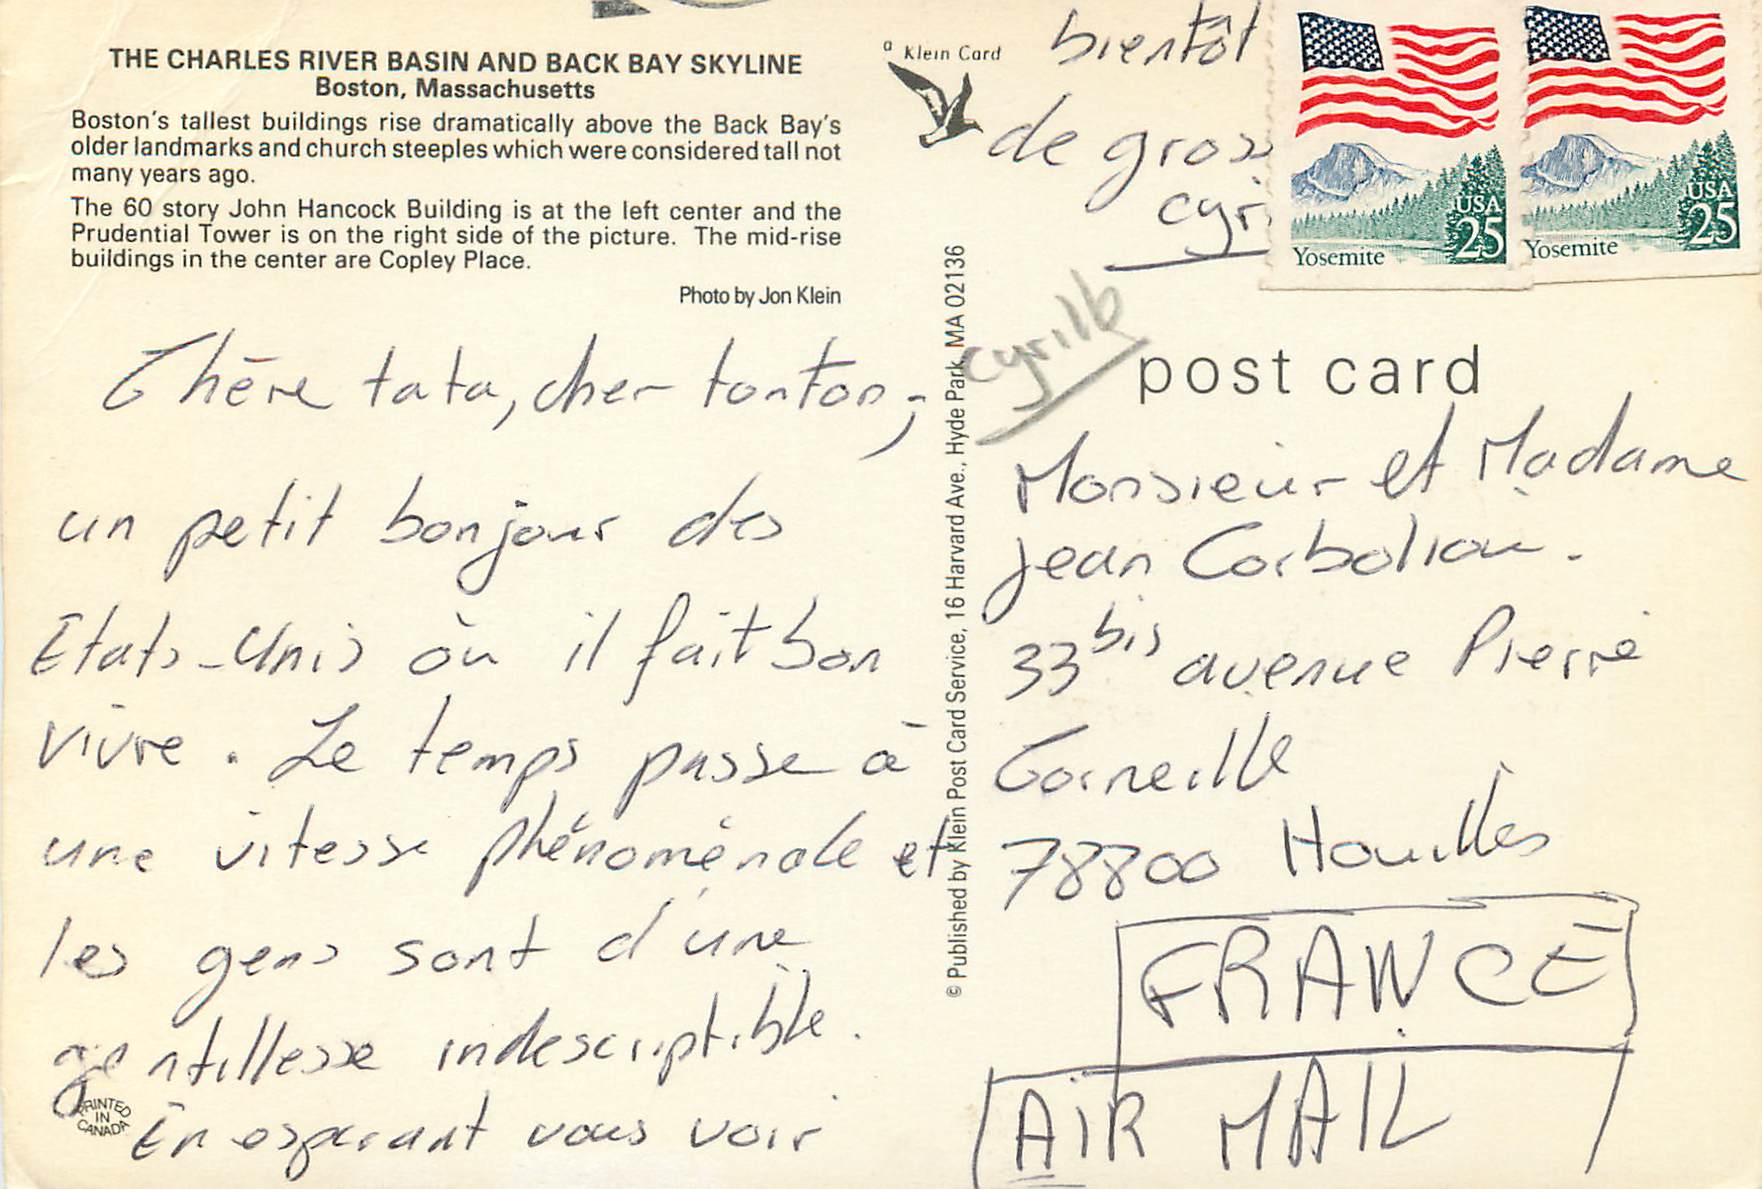 THE CHARLES RIVER BASIN AND BACK BAY SKYLINE
Boston, Massachusetts
Boston's tallest buildings rise dramatically above the Back Bay's
older landmarks and church steeples which were considered tall not
many years ago.
The 60 story John Hancock Building is at the left center and the
Prudential Tower is on the right side of the picture. The mid-rise
buildings in the center are Copley Place.
Photo by Jon Klein
Chère tata, cher tonton,
un petit bonjour des
Etats-Unis où il fait bon
vivre. Le temps passe à
une vitesse phénoménale et
les gens sont d'une
gentillesse indescriptible.
En espérant vous voir
PRINTED
IN
CANADA
a Klein Card
bientôt
de gros
cyri
© Published by Klein Post Card Service, 16 Harvard Ave., Hyde Park, MA 02136
Yosemite
USA
25
Yosemite
USA
25
post card
Monsieur et Madame
Jean
33 bis avenue Pierre
Corneille
78800 Houilles
FRANCE
AIR MAIL